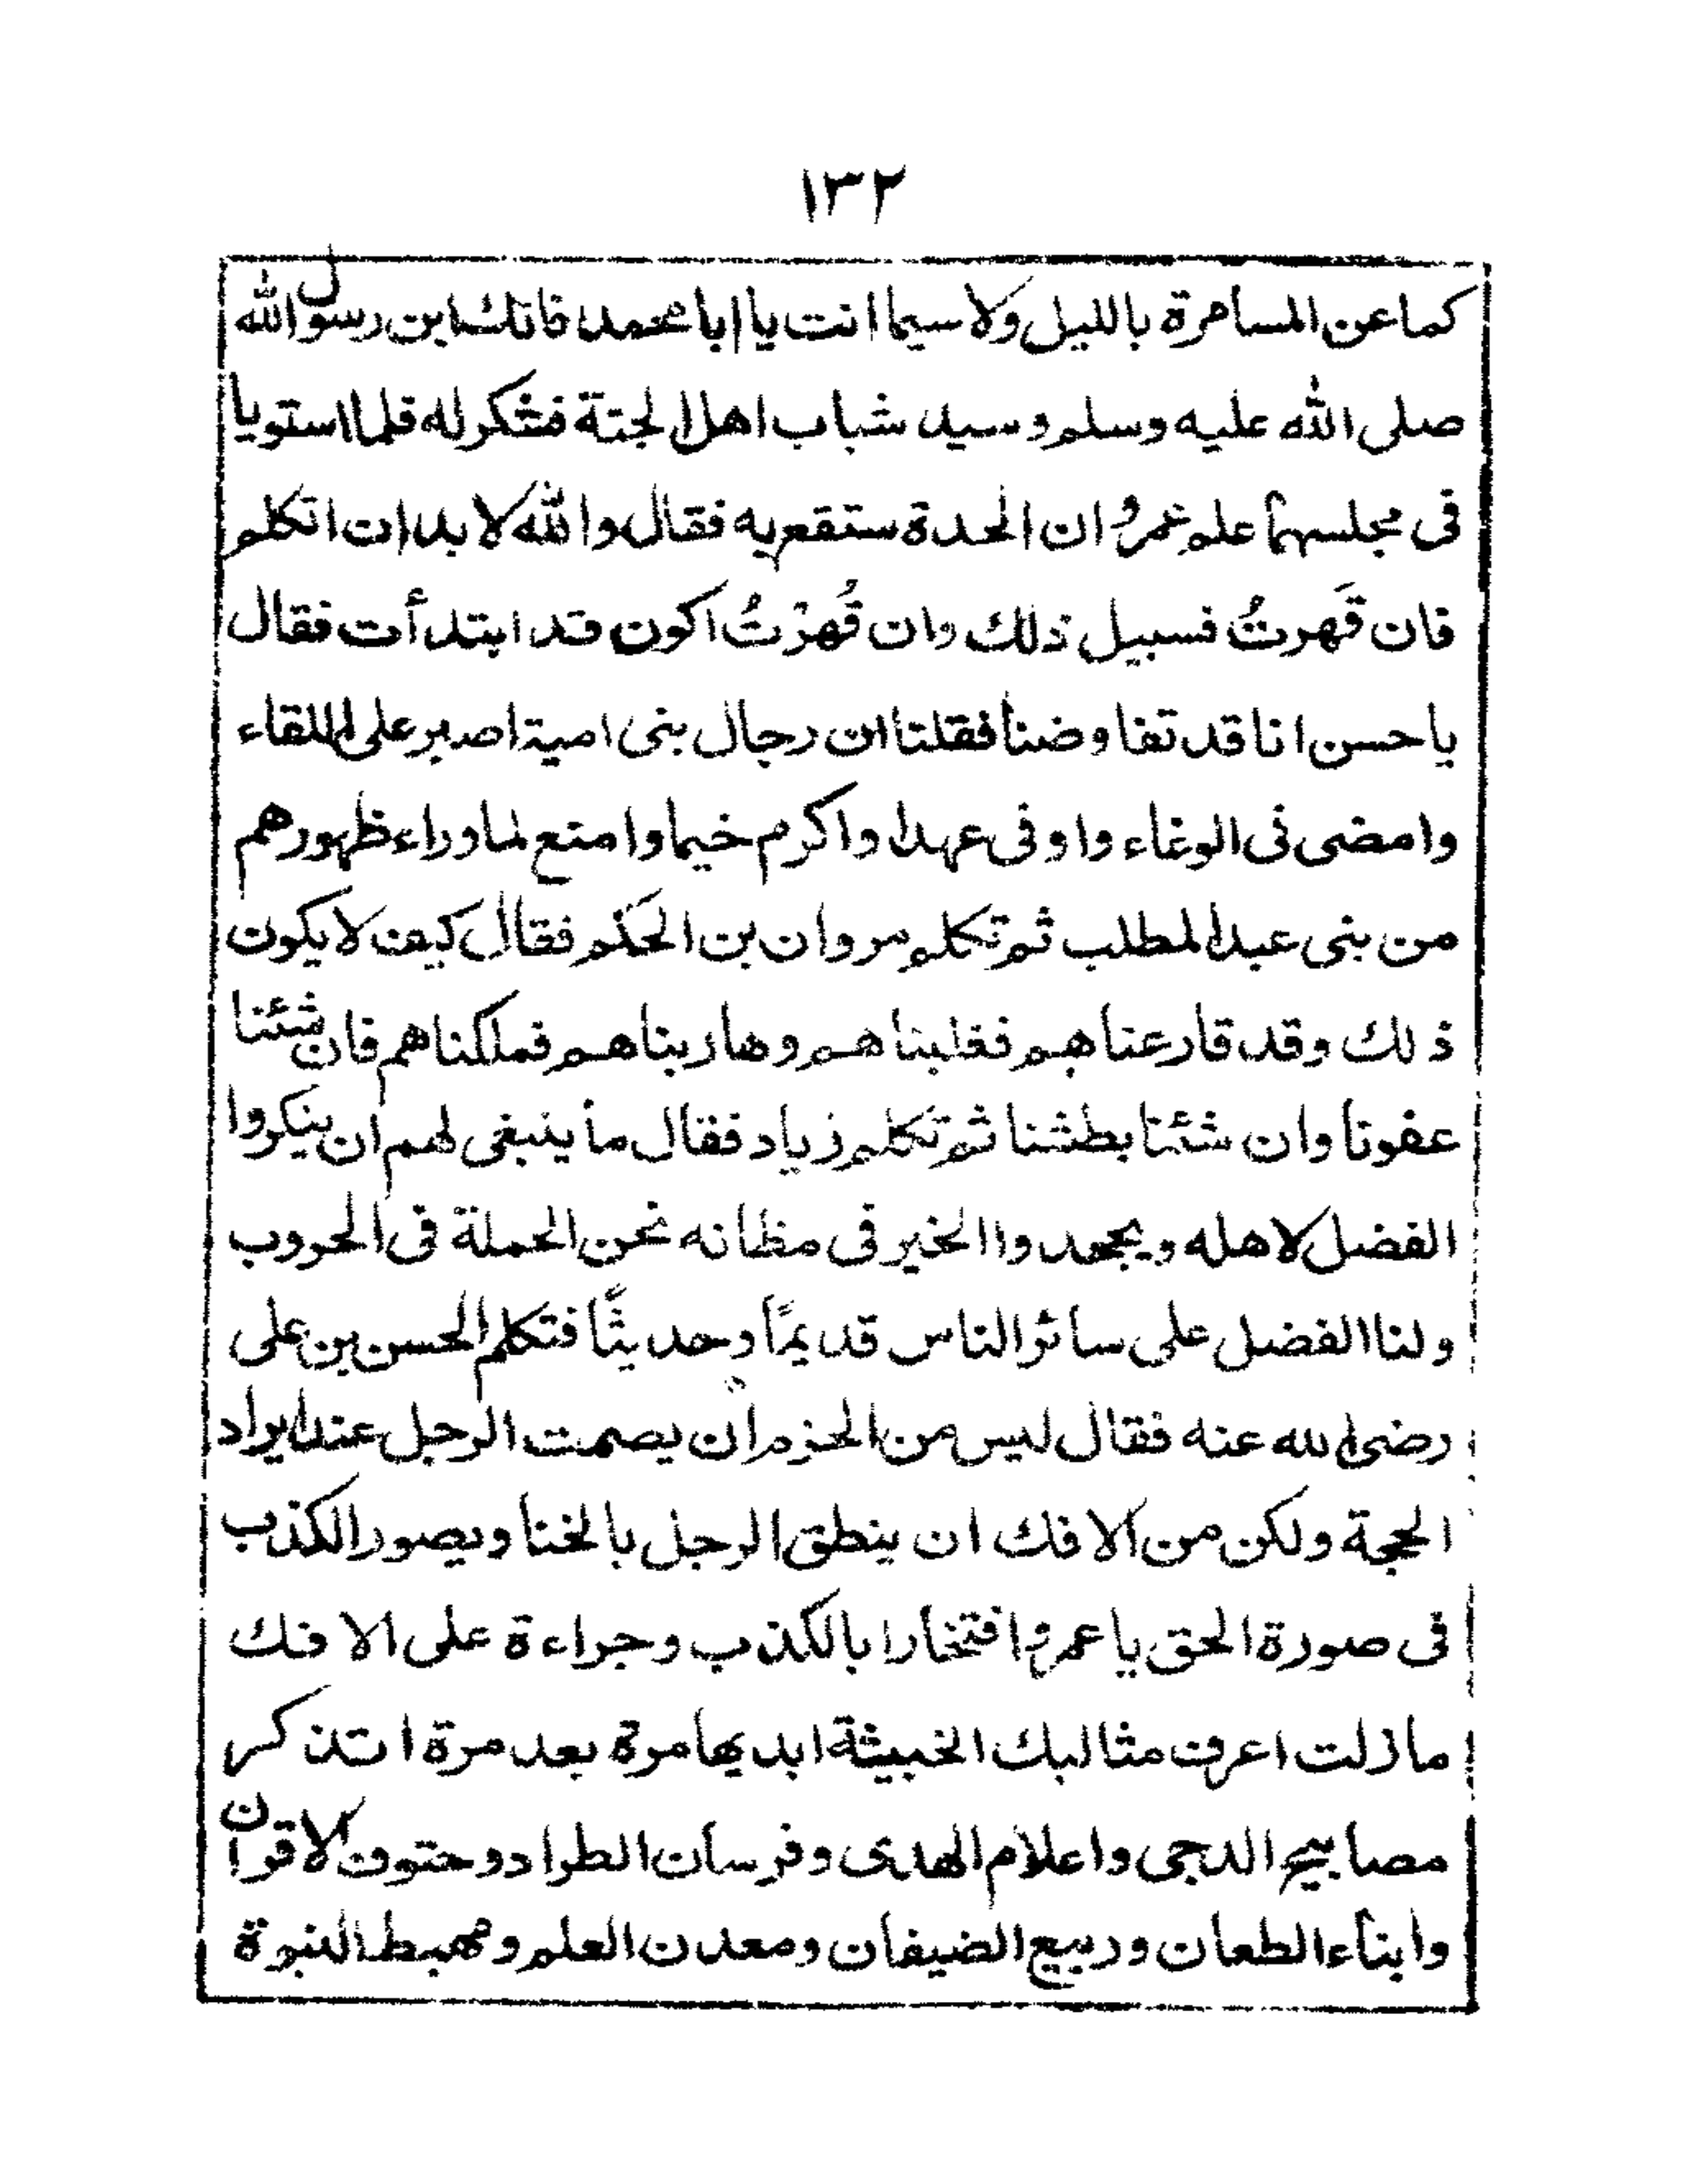 ١٣٢
كما عن المسامرة بالليل ولا سيما انت يا ابا محمد فانك ابن رسول الله
صلى الله عليه وسلم وسيد شباب اهل الجنة فشكر له فلما استويا
فى مجلسهما علم عمرو ان الحدة ستقع به فقال والله لا بد ان اتكلم
فان قَهرتُ فسبيل ذلك وان قُهرْتُ اكون قد ابتدأت فقال
يا حسن انا قد تفاوضنا فقلنا ان رجال بنى امية اصبر على اللقاء
وامضى فى الوغاء واوفى عهدا واكرم خيما وامنع لما وراء ظهورهم
من بنى عبد المطلب ثم تكلم مروان بن الحكم فقال كيف لا يكون
ذلك وقد قارعناهم فغلبناهم وحاربناهم فملكناهم فان شئنا
عفونا وان شئنا بطشنا ثم تكلم زياد فقال ما ينبغى لهم ان ينكروا
الفضل لاهله ويجحدوا الخير فى مظانه نحن الحملة فى الحروب
ولنا الفضل على سائر الناس قديمًا وحديثًا فتكلم الحسن بن على
رضى الله عنه فقال ليس من الحزم ان يصمت الرجل عند ايراد
الحجة ولكن من الافك ان ينطق الرجل بالخنا ويصور الكذب
فى صورة الحق يا عمرو افتخارا بالكذب وجراءة على الافك
ما زلت اعرف مثالبك الخبيثة ابديها مرة بعد مرة اتذكر
مصابيح الدجى واعلام الهدى وفرسان الطراد وحتوف الاقران
وابناء الطعان وربيع الضيفان ومعدن العلم ومهبط النبوة